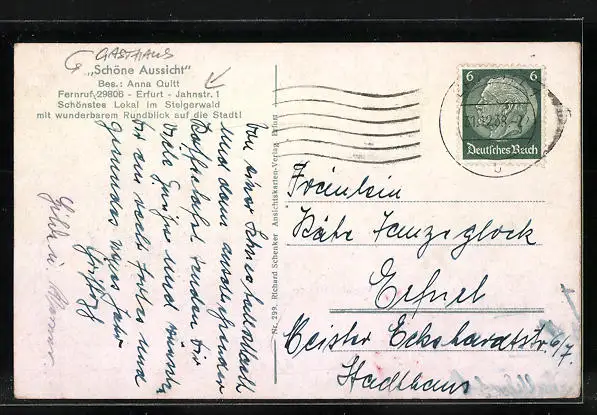 GASTHAUS
„Schöne Aussicht"
Bes.: Anna Quitt
Fernruf 29806 - Erfurt - Jahnstr. 1
Schönstes Lokal im Steigerwald
mit wunderbarem Rundblick auf die Stadt!
Von einer Schneeballschlacht
und dann anschließender
Kaffeetafel senden Dir
viele Grüße und wünschen
Dir ein recht frohes und
gesundes neues Jahr
Nr. 299. Richard Schenker Ansichtskarten-Verlag, Erfurt
6 6
Deutsches Reich
Fräulein
Käte
Erfurt
Meister Eckehardtstr. 6/7.
Stadthaus